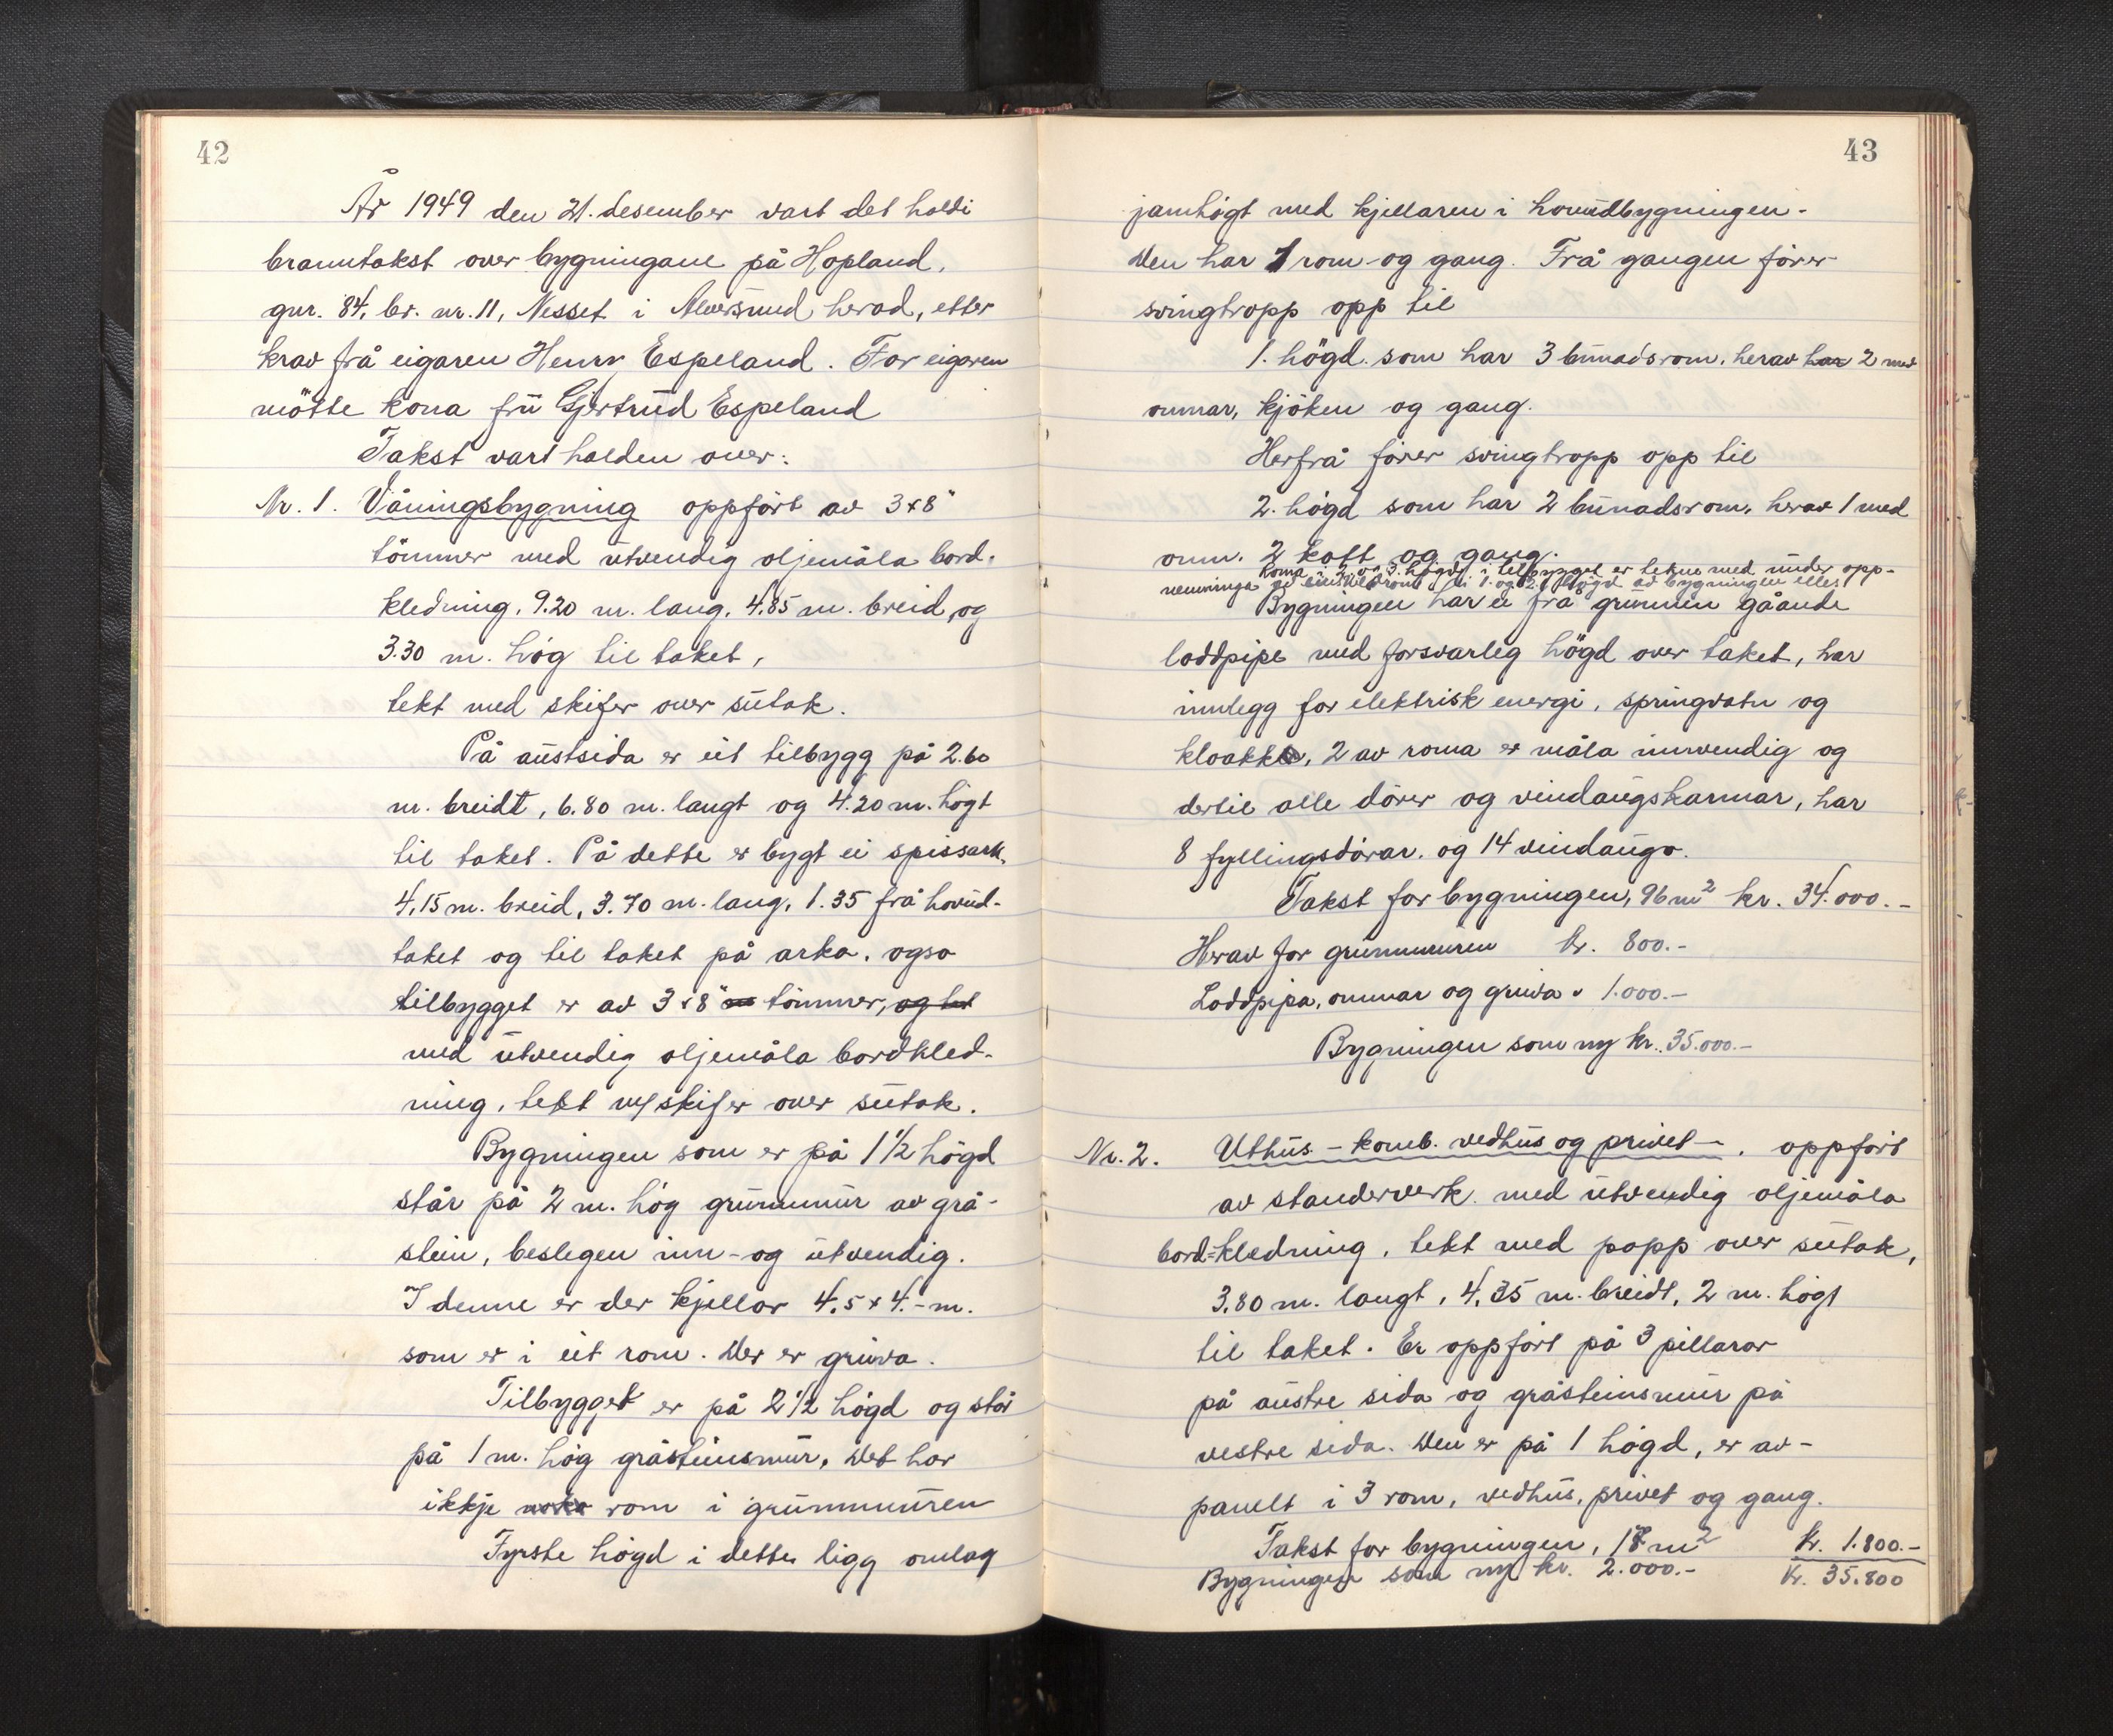 42
År 1949 den 21. desember vart det haldi
branntakst over bygningane på Hopland,
gnr. 84, br. nr. 11, Nesset i Alversund herad, etter
krav frå eigaren Henry Espeland. For eigaren
mötte kona frú Gjertrud Espeland
Takst vart halden over:
Nr. 1. Våningsbygning oppfört av 3x8"
tömmer med utvendig oljemåla bord-
kledning, 9.20 m. lang, 4.85 m. breid, og
3.30 m. hög til taket,
tekt med skifer over sutak.
På austsida er eit tilbygg på 2.60
m. breidt, 6.80 m. langt og 4.20 m. högt
til taket. På dette er bygt ei spissark,
4,15 m. breid, 3.70 m. lang, 1.35 frå hovud-
taket og til taket på arka, ogso
tilbygget er av 3x8" tömmer, og tekt
med utvendig oljemåla bordkled-
ning, tekt m/skifer over sutak.
Bygningen som er på 1 1/2 högd
står på 2 m. hög grunnmur av grå-
stein, beslegen inn- og utvendig.
I denne er der kjellar 4,5 x 4.- m.
som er i eit rom. Der er gruva.
Tilbygget er på 2 1/2 högd og står
på 1 m. hög gråsteinsmur. Det har
ikkje noko rom i grunnmuren
Fyrste högd i dette ligg omlag
43
jamhögt med kjellaren i hovudbygningen.
Den har 1 rom og gang. Frå gangen förer
svingtropp opp til
1. högd. som har 3 búnadsrom, herav har 2 med
omnar, kjöken og gang.
Herfrå förer svingtropp opp til
2. högd som har 2 búnadsrom, herav 1 med
omn. 2 kott og gang.
Roma i 2. og 3. högd i tilbygget er tekne med under opp-
nemninga av rom i 1. og 2. högd av bygningen elles.
Bygningen har ei frå grunnen gåande
loddpipe med forsvarleg högd over taket, har
innlegg for elektrisk energi, springvatn og
kloakk, 2 av roma er måla innvendig og
dertil alle dörer og vindaugskarmar, har
8 fyllingsdörar. og 14 vindaugo.
Takst for bygningen, 96 m² kr. 34.000.-
Herav for grunnmuren kr. 800.-
Loddpipa, omnar og gruva " 1.000.-
Bygningen som ny kr. 35.000.-
Nr. 2. Uthus - komb. vedhus og privet -. oppfört
av standerverk med utvendig oljemåla
bord=kledning, tekt med papp over sutak,
3,80 m. langt, 4,35 m. breidt, 2 m. högt
til taket. Er oppfört på 3 pillarar
på austre sida og gråsteinsmur på
vestre sida. Den er på 1 högd, er av-
panelt i 3 rom, vedhus, privet og gang.
Takst for bygningen, m² kr. 1.800.-
Bygningen som ny kr. 2.000.- Kr. 35.800